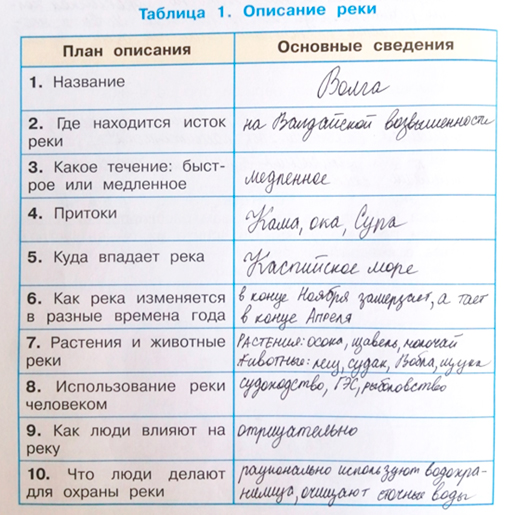 Таблица 1. Описание реки
План описания
Основные сведения
1. Название
Волга
2. Где находится исток
реки
на Валдайской возвышенности
3. Какое течение: быст-
рое или медленное
медленное
4. Притоки
Кама, ока, Сура
5. Куда впадает река
Каспийское море
6. Как река изменяется
в разные времена года
в конце Ноября замерзает, а тает
в конце Апреля
7. Растения и животные
реки
Растения: осока, щавель, молочай
Животные: лещ, судак, Вобла, щука
8. Использование реки
человеком
судоходство, ГЭС, рыболовство
9. Как люди влияют на
реку
отрицательно
10. Что люди делают
для охраны реки
рационально используют водохра-
нилища, очищают сточные воды